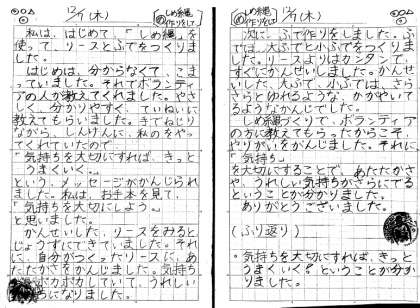 12/7(木)
しめ縄
作りをして
私は、はじめて、「しめ縄」を
使って、リースとふでをつくりま
した。
はじめは、分からなくて、こま
っていました。それでボランティ
アの人が教えてくれました。やさ
しく、分かりやすく、ていねいに
教えてもらいました。きてねじり
ながら、しんけんに、私のをやっ
てくれていたので
「気持ちを大切にすれば、きっと
うまくいく。」
という、メッセージがかんじられ
ました。私は、お手本を見て、
「気持ちを大切にしよう。」
と思いました。
かんせいした、リースをみると
じょうずにできていました。それ
に、自分がつくったリースに、あ
たたかさをかんじました。気持ち
ポカポカしていて、うれしい
になりました。
12/7(木)
しめ縄
作りをして
次に、ふで作りをしました。ふ
では、大ふでと小ふでをつくりま
した。リースよりはカンタンで、
すぐにかんせいしました。かんせ
いした、大ふで、小ふでは、さら
さらとゆれるような、かがやいて
るようなかんじでした。
しめ縄づくりで、ボランティア
の方に教えてもらったからこそ、
やりがいをかんじました。それに
「気持ち」
を大切にすることで、あたたかさ
や、うれしい気持ちがさらにでる
ということが分かりました。
ありがとうございました。
(ふり返り)
・気持ちを大切にすれば、きっと
うまくいく?ということが分か
りました。